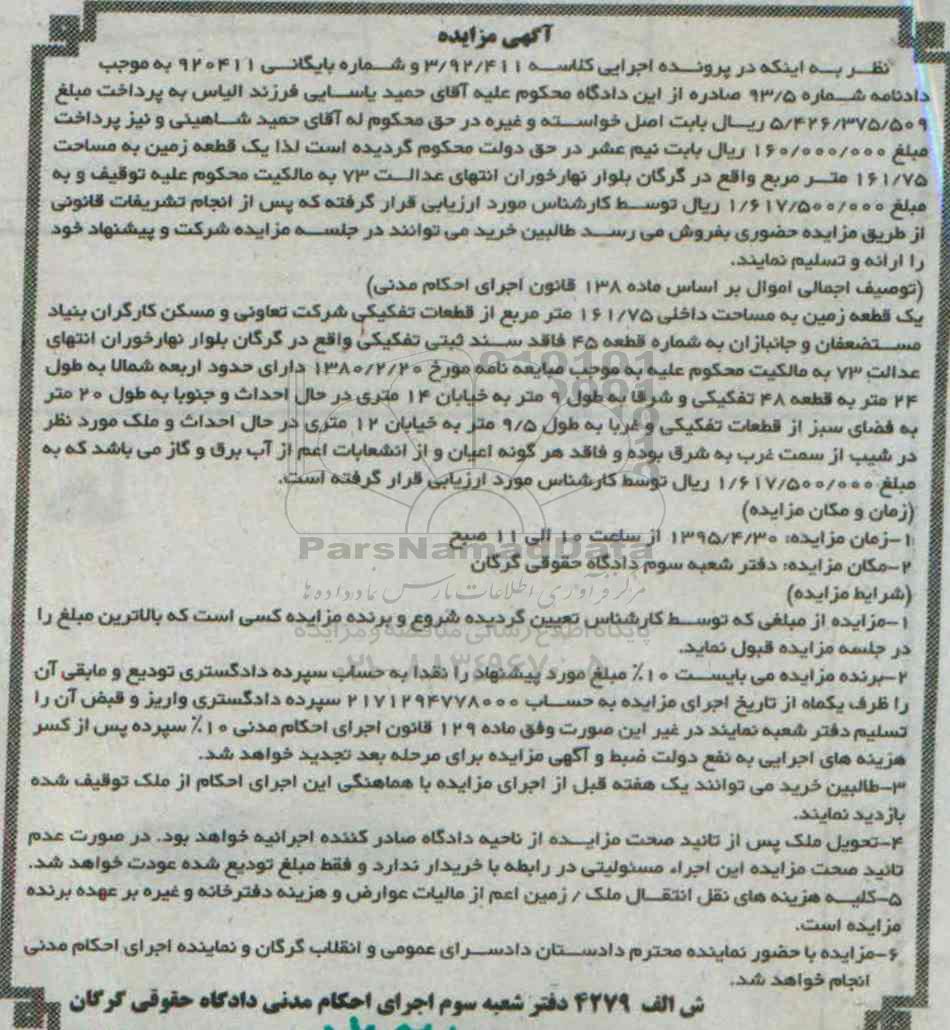 آگهی مزایده
نظر به اینکه در پرونده اجرایی کلاسه ۳/۹۲/۴۱۱ و شماره بایگانی ۹۲۰۴۱۱ به موجب
دادنامه شماره ۹۳/۵ صادره از این دادگاه محکوم علیه آقای حمید یاسایی فرزند الیاس به پرداخت مبلغ
۵/۴۲۶/۳۷۵/۵۰۹ ریال بابت اصل خواسته و غیره در حق محکوم له آقای حمید شاهینی و نیز پرداخت
مبلغ ۱۶۰/۰۰۰/۰۰۰ ریال بابت نیم عشر در حق دولت محکوم گردیده است لذا یک قطعه زمین به مساحت
۱۶۱/۷۵ متر مربع واقع در گرگان بلوار نهارخوران انتهای عدالت ۷۳ به مالکیت محکوم علیه توقیف و به
مبلغ ۱/۶۱۷/۵۰۰/۰۰۰ ریال توسط کارشناس مورد ارزیابی قرار گرفته که پس از انجام تشریفات قانونی
از طریق مزایده حضوری بفروش می رسد طالبین خرید می توانند در جلسه مزایده شرکت و پیشنهاد خود
را ارائه و تسلیم نمایند.
(توصیف اجمالی اموال بر اساس ماده ۱۳۸ قانون اجرای احکام مدنی)
یک قطعه زمین به مساحت داخلی ۱۶۱/۷۵ متر مربع از قطعات تفکیکی شرکت تعاونی و مسکن کارگران بنیاد
مستضعفان و جانبازان به شماره قطعه ۴۵ فاقد سند ثبتی تفکیکی واقع در گرگان بلوار نهارخوران انتهای
عدالت ۷۳ به مالکیت محکوم علیه به موجب مبایعه نامه مورخ ۱۳۸۰/۲/۲۰ دارای حدود اربعه شمالا به طول
۲۴ متر به قطعه ۴۸ تفکیکی و شرقا به طول ۹ متر به خیابان ۱۴ متری در حال احداث و جنوبا به طول ۲۰ متر
به فضای سبز از قطعات تفکیکی و غربا به طول ۹/۵ متر به خیابان ۱۲ متری در حال احداث و ملک مورد نظر
در شیب از سمت غرب به شرق بوده و فاقد هر گونه اعیان و از انشعابات اعم از آب برق و گاز می باشد که به
مبلغ ۱/۶۱۷/۵۰۰/۰۰۰ ریال توسط کارشناس مورد ارزیابی قرار گرفته است.
(زمان و مکان مزایده)
۱-زمان مزایده: ۱۳۹۵/۴/۳۰ از ساعت ۱۰ الی ۱۱ صبح
ParsNamadData
۲-مکان مزایده: دفتر شعبه سوم دادگاه حقوقی گرگان
مرکز فرآوری اطلاعات پارس نماد داده ها
(شرایط مزایده)
۱-مزایده از مبلغی که توسط کارشناس تعیین گردیده شروع و برنده مزایده کسی است که بالاترین مبلغ را
پایگاه اطلاع رسانی مناقصه و مزایده
در جلسه مزایده قبول نماید.
۲-برنده مزایده می بایست ۱۰٪ مبلغ مورد پیشنهاد را نقدا به حساب سپرده دادگستری تودیع و مابقی آن
را ظرف یکماه از تاریخ اجرای مزایده به حساب ۲۱۷۱۲۹۴۷۷۸۰۰۰ سپرده دادگستری واریز و قبض آن را
تسلیم دفتر شعبه نمایند در غیر این صورت وفق ماده ۱۲۹ قانون اجرای احکام مدنی ۱۰٪ سپرده پس از کسر
هزینه های اجرایی به نفع دولت ضبط و آگهی مزایده برای مرحله بعد تجدید خواهد شد.
۳-طالبین خرید می توانند یک هفته قبل از اجرای مزایده با هماهنگی این اجرای احکام از ملک توقیف شده
بازدید نمایند.
۴-تحویل ملک پس از تائید صحت مزایده از ناحیه دادگاه صادر کننده اجرائیه خواهد بود. در صورت عدم
تائید صحت مزایده این اجراء مسئولیتی در رابطه با خریدار ندارد و فقط مبلغ تودیع شده عودت خواهد شد.
۵-کلیه هزینه های نقل انتقال ملک / زمین اعم از مالیات عوارض و هزینه دفترخانه و غیره بر عهده برنده
مزایده است.
۶-مزایده با حضور نماینده محترم دادستان دادسرای عمومی و انقلاب گرگان و نماینده اجرای احکام مدنی
انجام خواهد شد.
ش الف ۴۲۷۹ دفتر شعبه سوم اجرای احکام مدنی دادگاه حقوقی گرگان